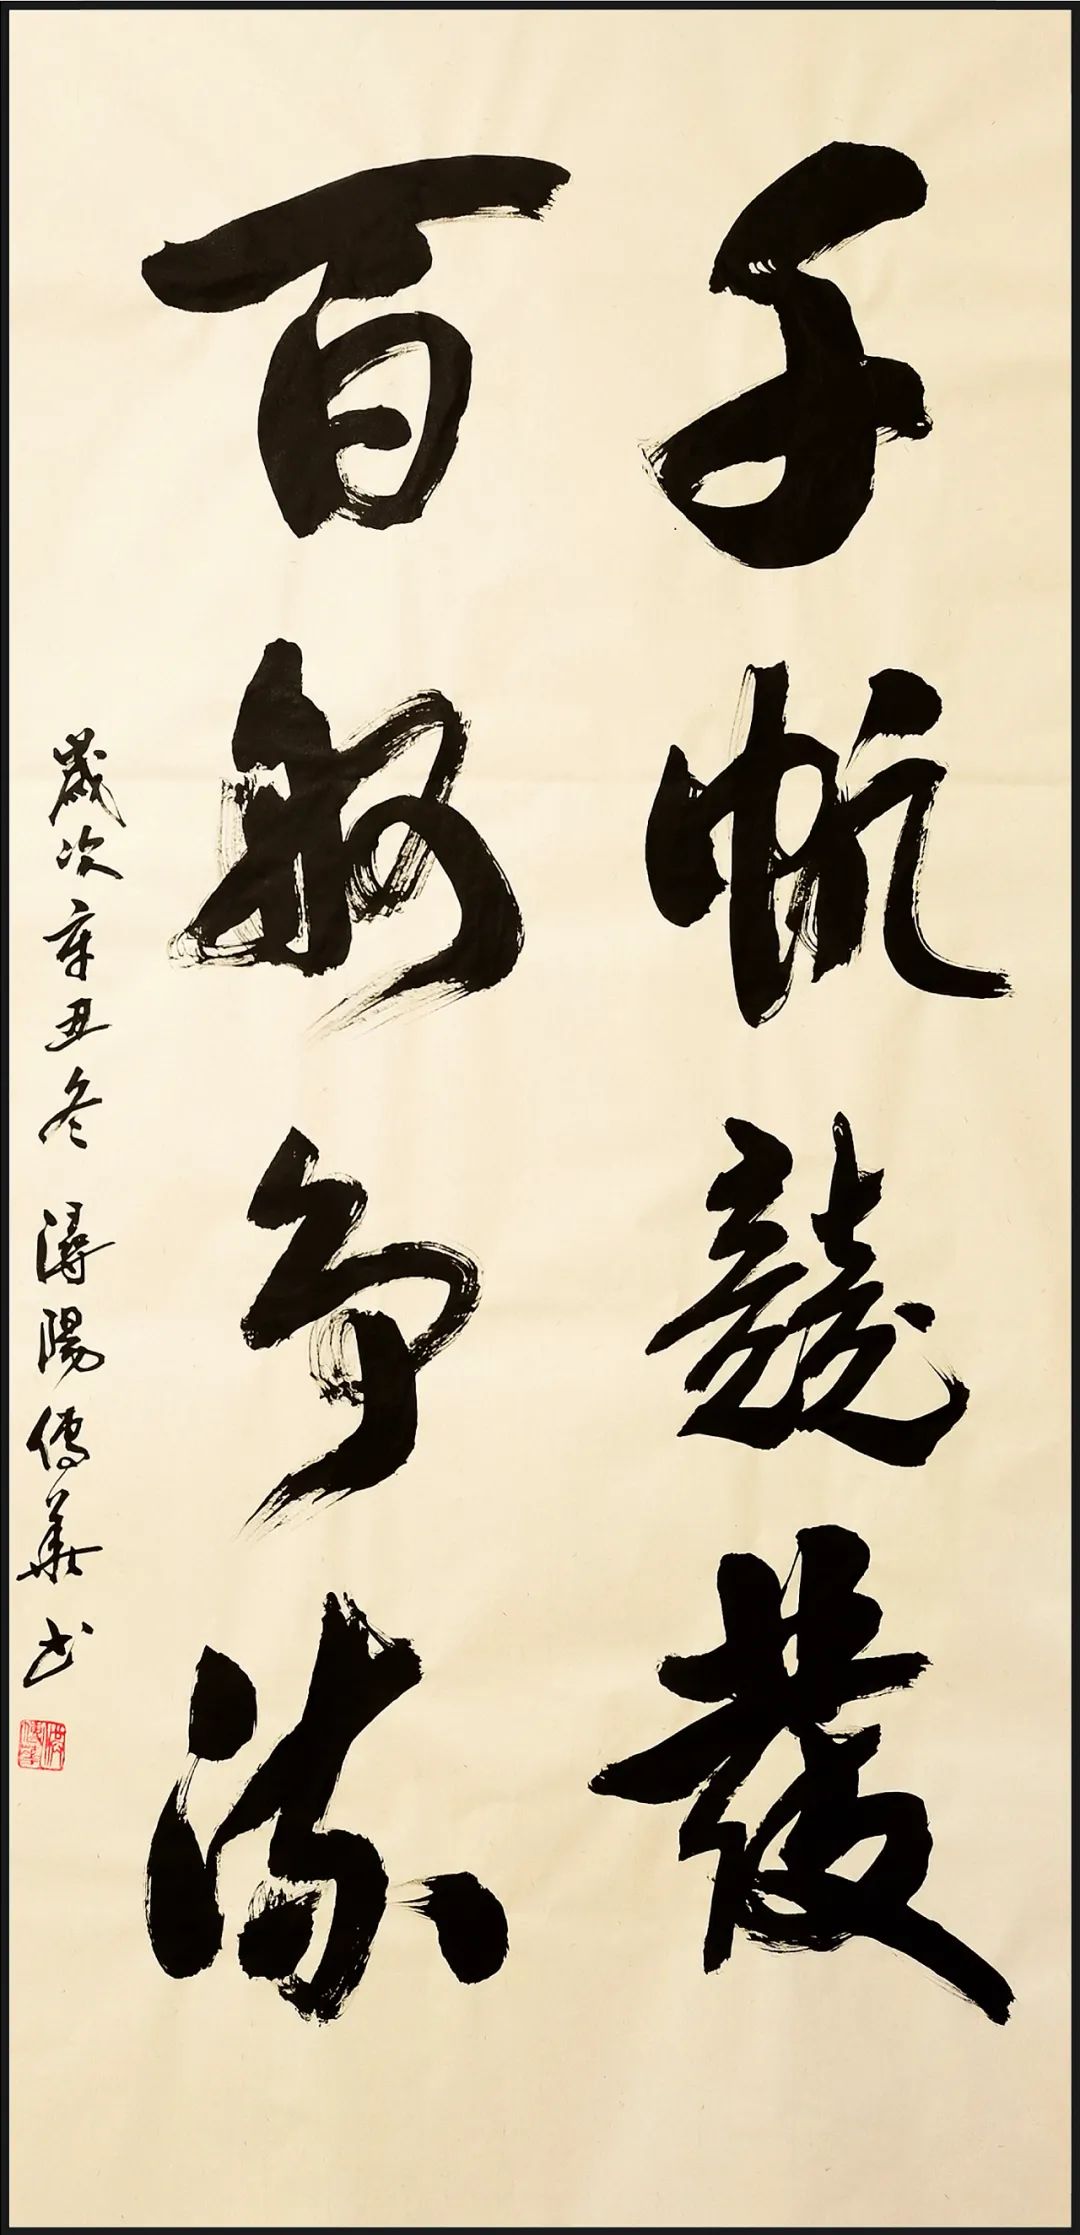 千帆競發
百舸争流
歲次辛丑冬 潯陽傳華书